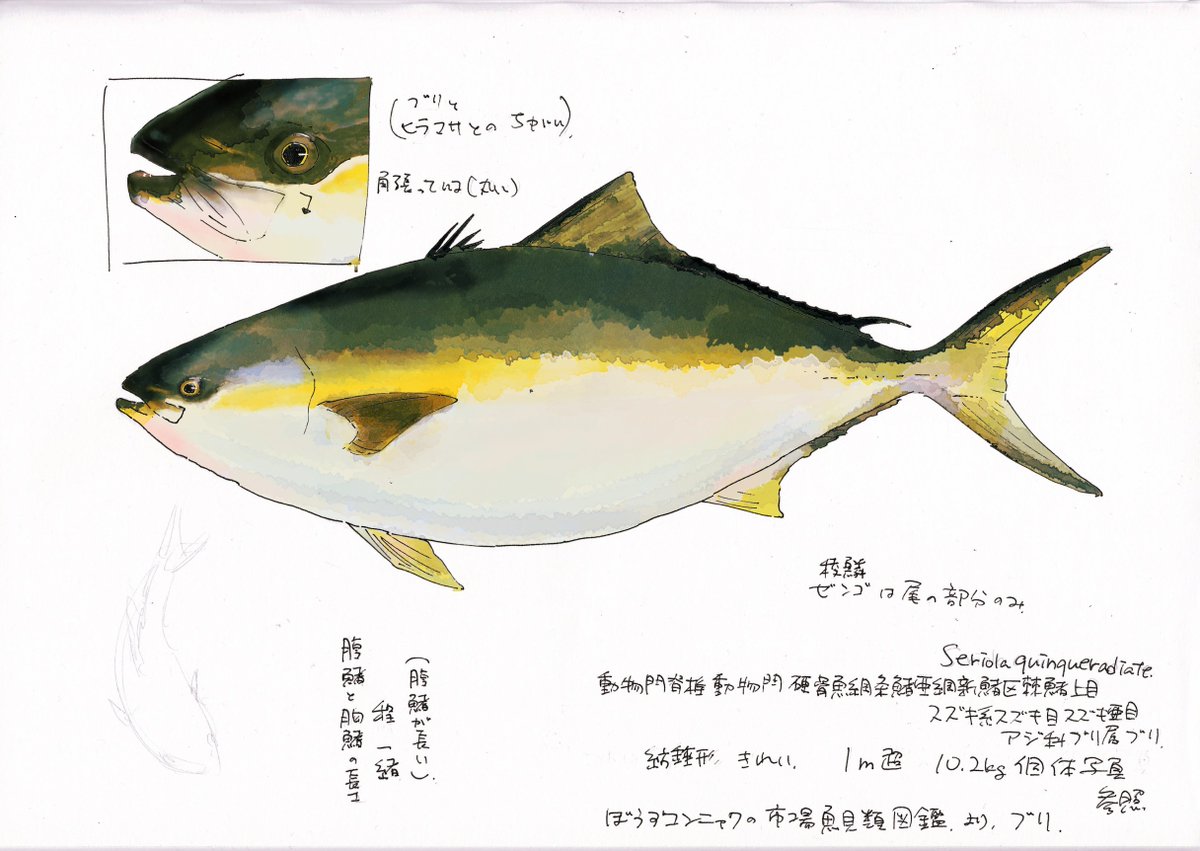 (ブリと
ヒラマサとの ちがい)
角張っている(丸い)
稜鱗
ゼンゴは尾の部分のみ
腹鰭と胸鰭の長さ
程一緒
(腹鰭が長い)
Seriola quinqueradiate.
動物門脊椎動物門 硬骨魚綱条鰭亜綱新鰭区棘鰭上目
スズキ系スズキ目スズキ亜目
アジ科ブリ属ブリ.
紡錘形, きれい. 1m超 10.2kg個体写真
参照
ぼうずコンニャクの市場魚貝類図鑑.より, ブリ.